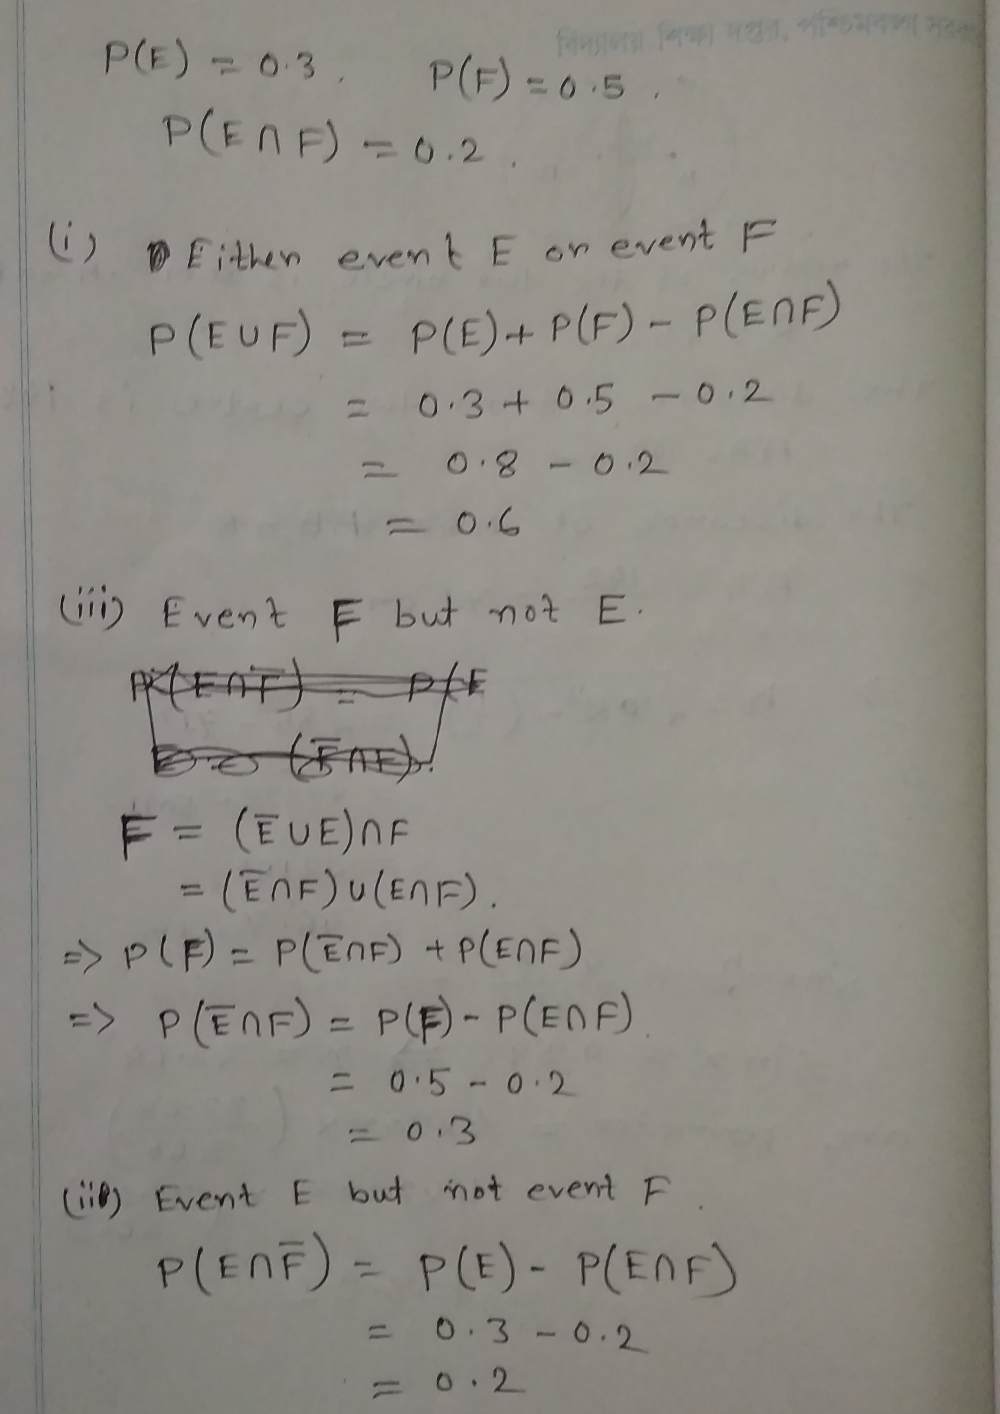 P(E) = 0.3. P(F) = 0.5.
P(E∩F) = 0.2.
(i) Either event E or event F
P(E∪F) = P(E) + P(F) - P(E∩F)
= 0.3 + 0.5 - 0.2
= 0.8 - 0.2
= 0.6
(iii) Event F but not E.
F = (E̅∪E)∩F
= (E̅∩F)∪(E∩F).
=> P(F) = P(E̅∩F) + P(E∩F)
=> P(E̅∩F) = P(F) - P(E∩F).
= 0.5 - 0.2
= 0.3
(ii) Event E but not event F.
P(E∩F̅) = P(E) - P(E∩F)
= 0.3 - 0.2
= 0.2